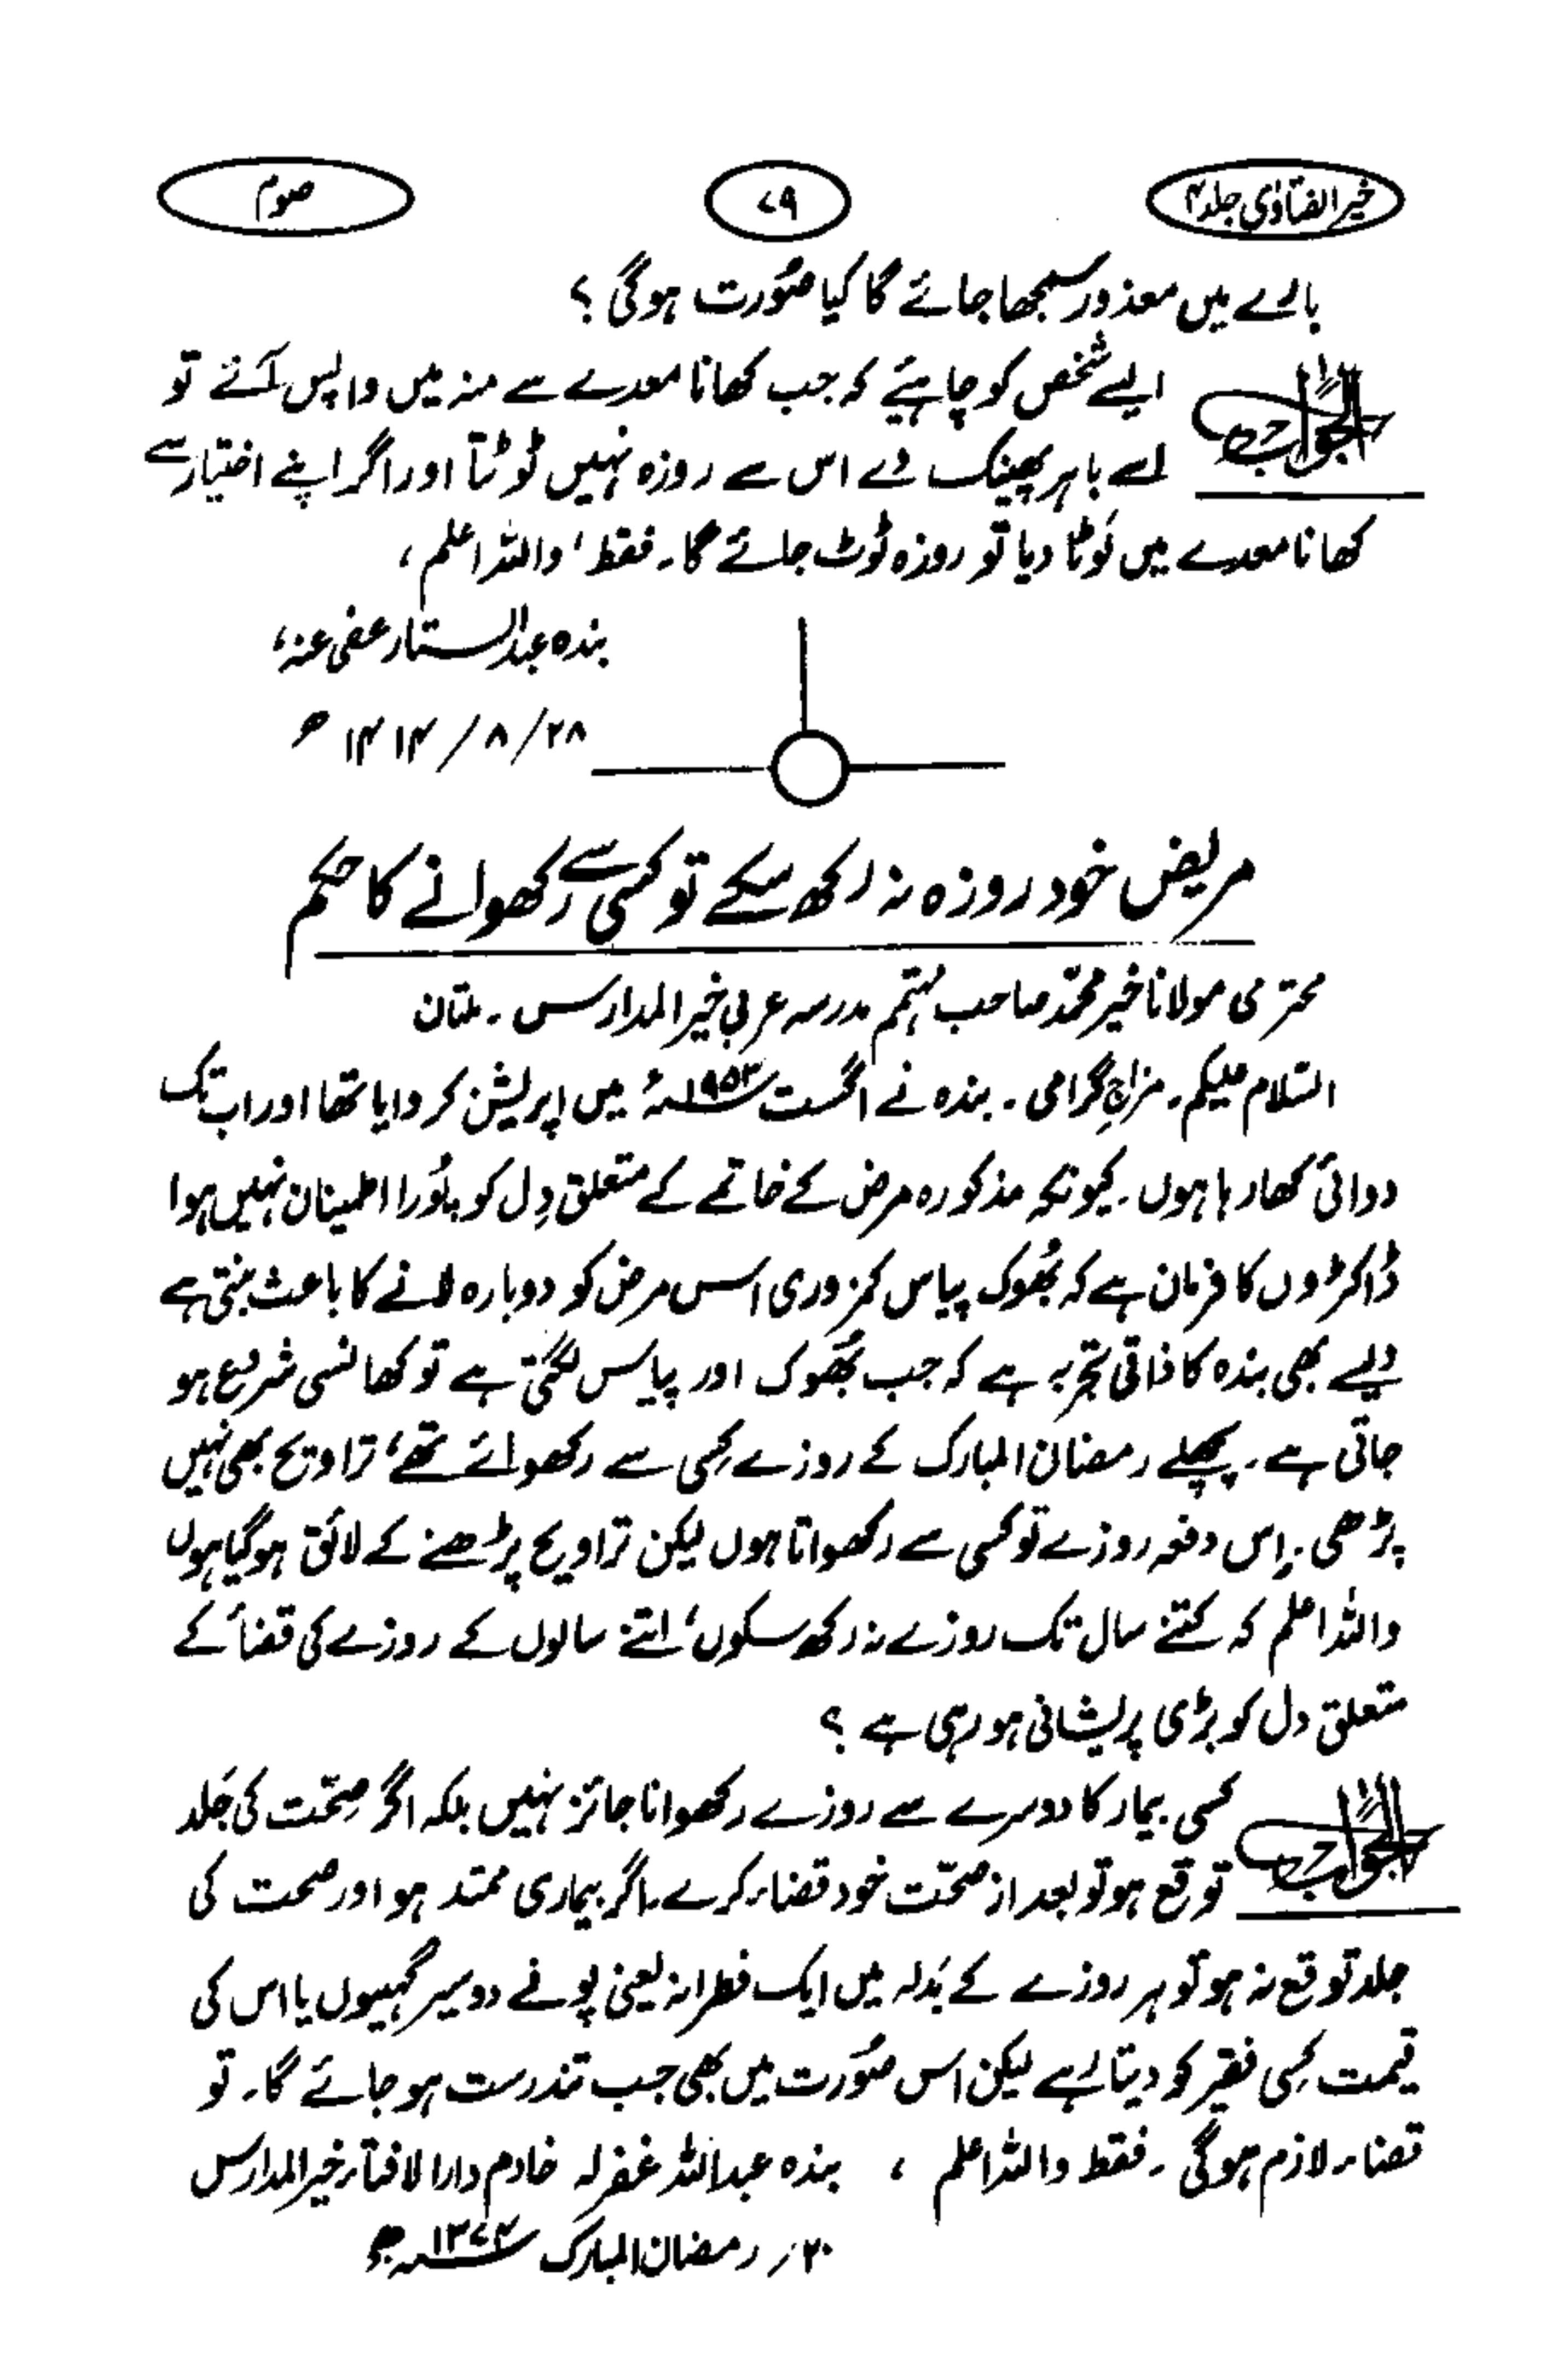 خیر الفتاوٰی جلد ۴
۷۹
صوم
بارے میں معذور سمجھا جائے گا کیا صُورت ہوگی ؟
الجواب
ایسے شخص کو چاہیئے کہ جب کھانا معدے سے منہ میں واپس آئے تو
اسے باہر پھینک دے اس سے روزہ نہیں ٹوٹتا اور اگر اپنے اختیار سے
کھانا معدے میں لَوٹا دیا تو روزہ ٹوٹ جائے گا۔ فقط، واللہ اعلم ،
بندہ عبدالستار عفی عنہ،
۲۸/ ۸ / ۱۴۱۴ ھ
مریض خود روزہ نہ رکھ سکے تو کسی سے رکھوانے کا حکم
محترمی مولانا خیر محمّد صاحب مہتمم مدرسہ عربی خیر المدارس ۔ ملتان
السّلام علیکم۔ مزاجِ گرامی ۔ بندہ نے اگست ۱۹۵۳ء میں اپریشن کروایا تھا اور اب تک
دوائی کھا رہا ہوں۔ کیونکہ مذکورہ مرض کے خاتمے کے متعلق دِل کو پُورا اطمینان نہیں ہوا
ڈاکٹروں کا فرمان ہے کہ بُھوک پیاس کمزوری اس مرض کو دوبارہ لانے کا باعث بنتی ہے
ویسے بھی بندہ کا ذاتی تجربہ ہے کہ جب بُھوک اور پیاس لگتی ہے تو کھانسی شروع ہو
جاتی ہے۔ پچھلے رمضان المبارک کے روزے کِسی سے رکھوائے تھے، تراویح بھی نہیں
پڑھی۔ اِس دفعہ روزے تو کسی سے رکھواتا ہوں لیکن تراویح پڑھنے کے لائق ہوگیا ہوں
واللہ اعلم کہ کتنے سال تک روزے نہ رکھ سکوں، اتنے سالوں کے روزے کی قضاء کے
متعلق دل کو بڑی پریشانی ہو رہی ہے ؟
الجواب
کسی بیمار کا دوسرے سے روزے رکھوانا جائز نہیں بلکہ اگر صِحّت کی جَلد
توقع ہو تو بعد از صحّت خود قضاء کرے۔ اگر بیماری ممتد ہو اور صحت کی
جلد توقع نہ ہو تو ہر روزے کے بَدلہ میں ایک فطرانہ یعنی پونے دو سیر گہیوں یا اس کی
قیمت کِسی فقیر کو دیتا رہے لیکن اس صُورت میں بھی جب تندرست ہو جائے گا۔ تو
قضاء لازم ہوگی ۔ فقط واللہ اعلم ، بندہ عبداللہ غفرلہ خادم دارالافتاء خیر المدارس
۲۰؍ رمضان المبارک ۱۳۷۴ھ